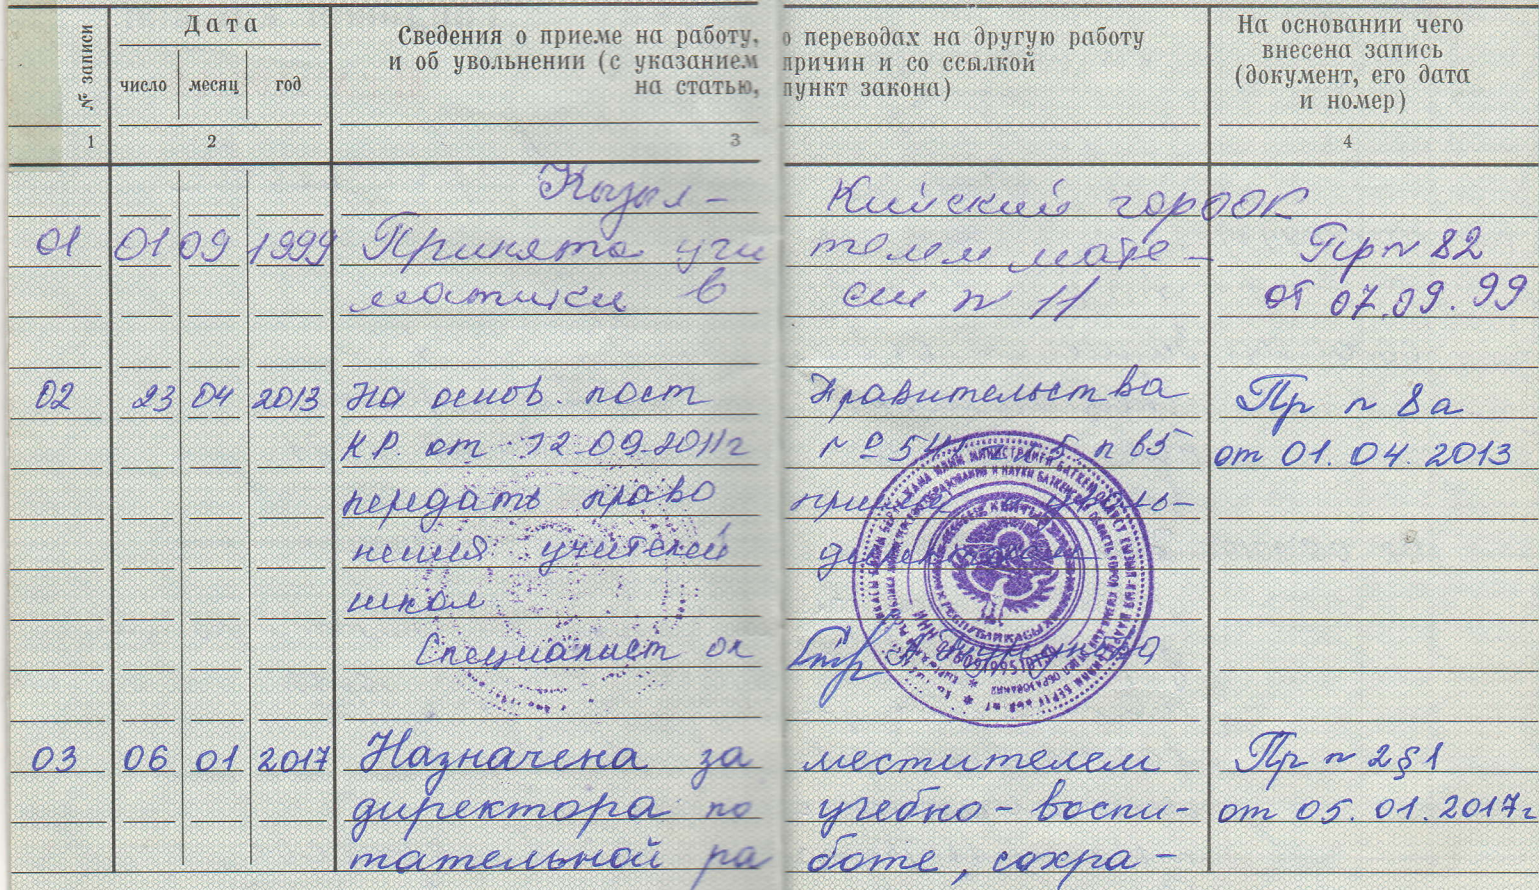 № записи
Дата
число месяц год
Сведения о приеме на работу, о переводах на другую работу
и об увольнении (с указанием причин и со ссылкой
на статью, пункт закона)
На основании чего
внесена запись
(документ, его дата
и номер)
1 2 3 4
Кызыл- Кийский горООК
01 01 09 1999 Принята учи телем мате- Пр n 82
матики в сш n 11 от 07.09.99
02 23 04 2013 На основ. пост Правительства Пр n 8а
К.Р. от 12.09.2011г №541 5 п в5 от 01.04.2013
передать право
нения учителей
школ
Специалист ок
03 06 01 2017 Назначена за местителем Пр n 2§1
директора по учебно-воспи- от 05.01.2017г
тательной ра боте, сохра-